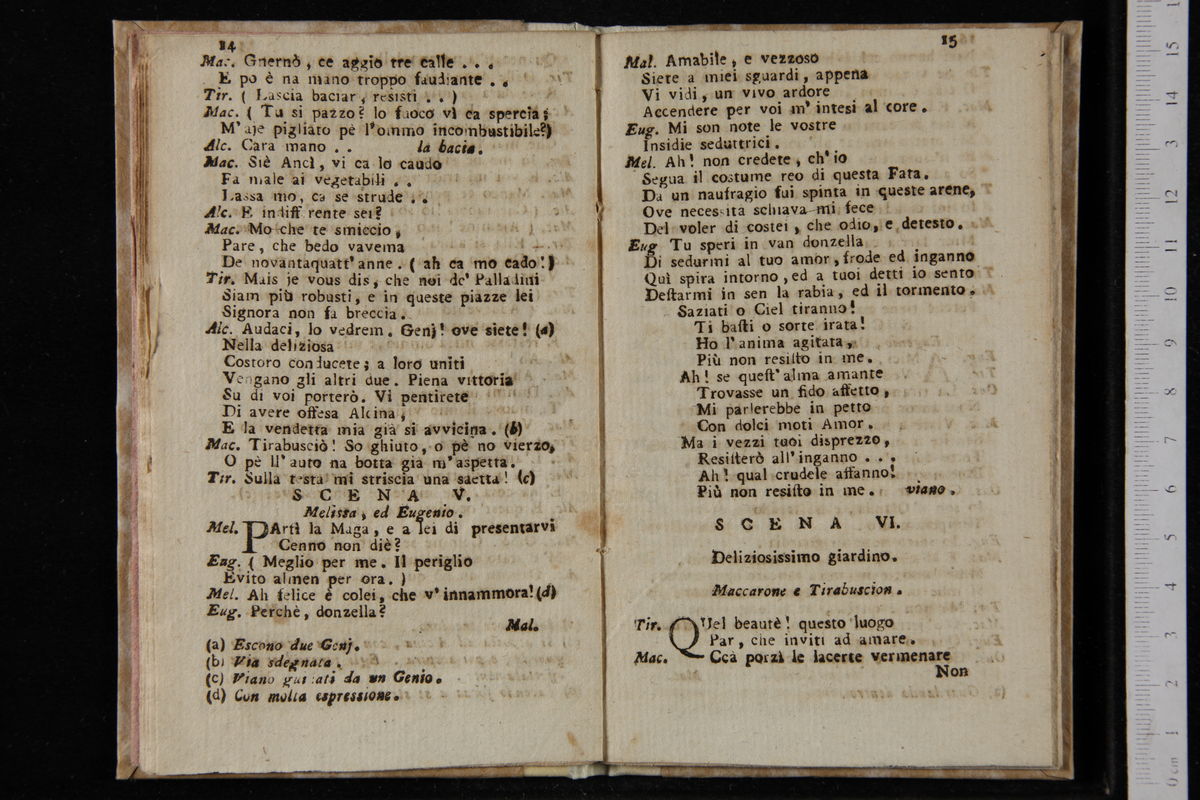 14
Mac. Guernò, ce aggio tre calle . . .
E po è na mano troppo faudiante . .
Tir. ( Lascia baciar, resisti . . )
Mac. ( Tu si pazzo? lo fuoco vi ca spercia;
M'aje pigliato pè l'ommo incombustibile?)
Alc. Cara mano . . la bacia.
Mac. Siè Ancì, vi ca lo caudo
Fa male ai vegetabili . .
Lassa mo, ca se strude . .
Alc. E indiff rente sei?
Mac. Mo che te smiccio,
Pare, che bedo vavema
De novantaquatt' anne. ( ah ca mo cado!)
Tir. Mais je vous dis, che noi de' Palladini
Siam più robusti, e in queste piazze lei
Signora non fa breccia.
Alc. Audaci, lo vedrem. Genj! ove siete! (a)
Nella deliziosa
Costoro conducete; a loro uniti
Vengano gli altri due. Piena vittoria
Su di voi porterò. Vi pentirete
Di avere offesa Alcina,
E la vendetta mia già si avvicina. (b)
Mac. Tirabusciò! So ghiuto, o pè no vierzo,
O pè ll' auto na botta già m'aspetta.
Tir. Sulla testa mi striscia una saetta! (c)
SCENA V.
Melissa, ed Eugenio.
Mel. PArtì la Maga, e a lei di presentarvi
Cenno non diè?
Eug. ( Meglio per me. Il periglio
Evito almen per ora. )
Mel. Ah felice è colei, che v' innammora! (d)
Eug. Perchè, donzella?
Mal.
(a) Escono due Genj.
(b) Via sdegnata.
(c) Viano guidati da un Genio.
(d) Con molta espressione.
15
Mal. Amabile, e vezzoso
Siete a miei sguardi, appena
Vi vidi, un vivo ardore
Accendere per voi m' intesi al core.
Eug. Mi son note le vostre
Insidie seduttrici.
Mel. Ah! non credete, ch' io
Segua il costume reo di questa Fata.
Da un naufragio fui spinta in queste arene,
Ove necessità schiava mi fece
Del voler di costei, che odio, e detesto.
Eug Tu speri in van donzella
Di sedurmi al tuo amor, frode ed inganno
Quì spira intorno, ed a tuoi detti io sento
Destarmi in sen la rabia, ed il tormento.
Saziati o Ciel tiranno!
Ti basti o sorte irata!
Ho l' anima agitata,
Più non resisto in me.
Ah! se quest' alma amante
Trovasse un fido affetto,
Mi parlerebbe in petto
Con dolci moti Amor.
Ma i vezzi tuoi disprezzo,
Resisterò all' inganno . . .
Ah! qual crudele affanno!
Più non resisto in me. viano.
SCENA VI.
Deliziosissimo giardino.
Maccarone e Tirabuscion.
Tir. QUel beautè! questo luogo
Par, che inviti ad amare.
Mac. Ccà porzì le lacerte vermenare
Non